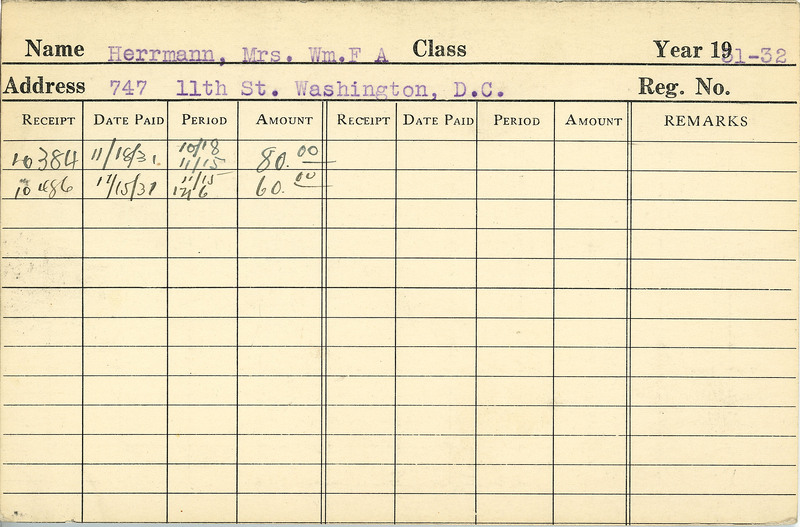 Name Herrmann, Mrs. Wm.F A Class Year 1931-32
Address 747 11th St. Washington, D.C. Reg. No.
RECEIPT DATE PAID PERIOD AMOUNT RECEIPT DATE PAID PERIOD AMOUNT REMARKS
10/18
10384 11/18/31 11/15 80.00
11/15
10486 11/15/31 60.00